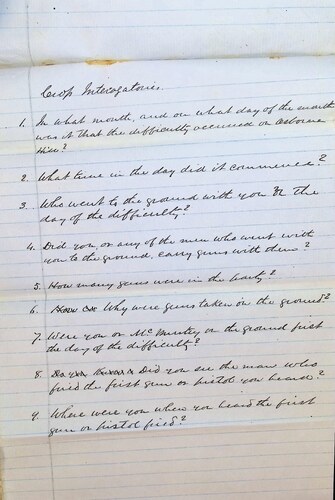 Cross Interogatories.
1. In what month, and on what day of the month
was it that the difficulty occurred on Osborne
Hill?
2. What time in the day did it commence?
3. Who went to the ground with you on the
day of the difficulty?
4. Did you, or any of the men who went with
you to the ground, carry guns with them?
5. How many guns were in the party?
6. Why were guns taken on the ground?
7. Were you or McMurtry on the ground first
the day of the difficulty?
8. Did you see the man who
fired the first gun or pistol you heard?
9. Where were you when you heard the first
gun or pistol fired?